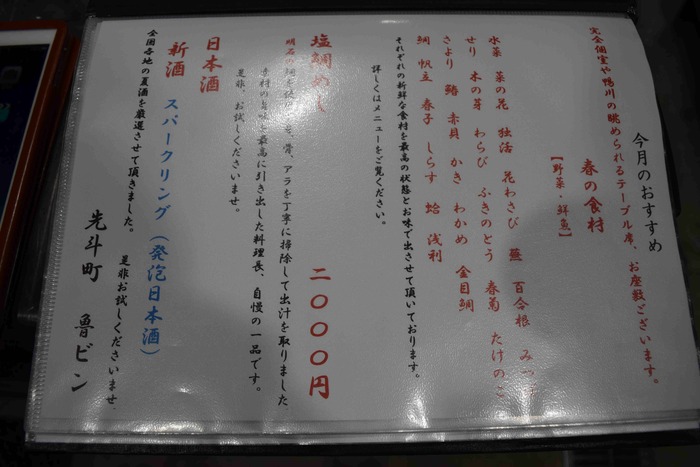 完全個室や鴨川の眺められるテーブル席、お座敷ございます。
今月のおすすめ
春の食材
【野菜・鮮魚】
水菜 菜の花 独活 花わさび 蕪 百合根 みつ
せり 木の芽 わらび ふきのとう 春菊 たけのこ
さより 鰆 赤貝 かき わかめ 金目鯛
鯛 帆立 春子 しらす 蛤 浅利
それぞれの新鮮な食材を最高の状態とお味で出させて頂いております。
詳しくはメニューをご覧ください。
塩鯛めし 二〇〇〇円
明石の鯛を 骨、アラを丁寧に掃除して出汁を取りました
最高に引き出した料理長、自慢の一品です。
是非、お試しくださいませ。
日本酒
新酒 スパークリング（発泡日本酒）
全国各地の夏酒を厳選させて頂きました。 是非お試しくださいませ。
先斗町 魯ビン